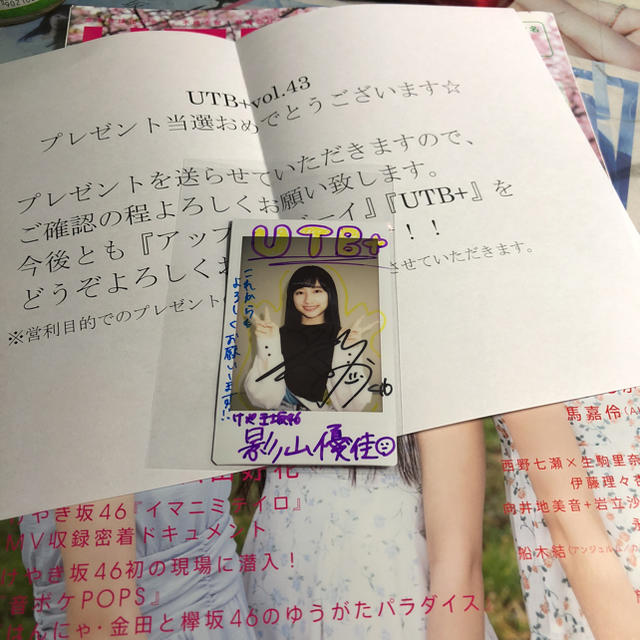 UTB+vol.43
プレゼント当選おめでとうございます☆
プレゼントを送らせていただきますので、
ご確認の程よろしくお願い致します。
今後とも『アップ ーイ』『UTB+』を
どうぞよろしくお ！！
※営利目的でのプレゼント させていただきます。
UTB+
これからも
よろしくお願いします!!
けやき坂46
影山優佳
馬嘉伶
西野七瀬×生駒里奈
伊藤理々杏
向井地美音+岩立沙
船木結(アンジュル
やき坂46『イマニミテイロ』
MV収録密着ドキュメント
けやき坂46初の現場に潜入！
音ボケPOPS』
んにゃ・金田と欅坂46のゆうがたパラダイス